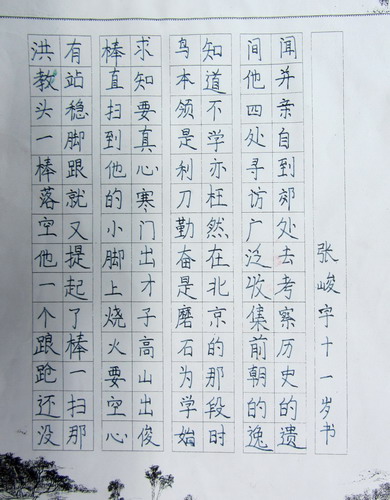 洪教头一棒落空他一个踉跄还没
有站稳脚跟就又提起了棒一扫那
棒直扫到他的小脚上烧火要空心
求知要真心寒门出才子高山出俊
鸟本领是利刀勤奋是磨石为学始
知道不学亦枉然在北京的那段时
间他四处寻访广泛收集前朝的逸
闻并亲自到郊处去考察历史的遗
张峻宇十一岁书